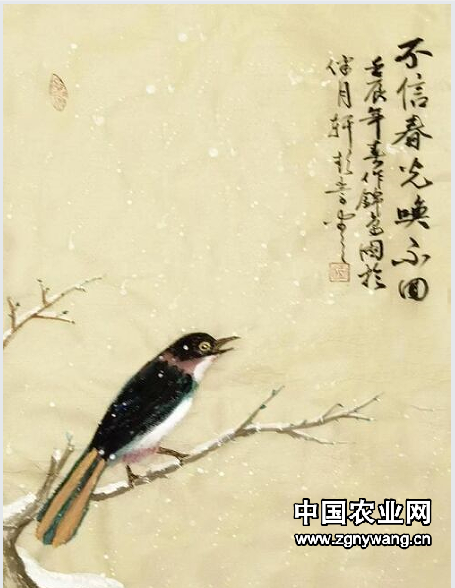 不信春光唤不回
壬辰年春作锦堂图於
伴月轩
中国农业网
www.zgnywang.cn